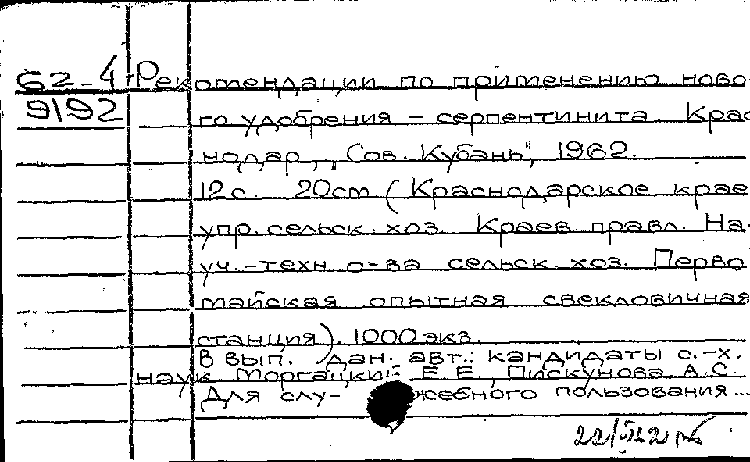 62-4 Рекомендации по применению ново-
9192 го удобрения - серпентинита Крас
нодар, "Сов. Кубань", 1962.
12 с. 20 cm (Краснодарское крае
упр. сельск. хоз. Краев правл. На-
уч.-техн о-ва сельск. хоз. Перво
майская опытная свекловичная
станция). 1000 экз.
В вып. дан. авт.: кандидаты с.-х.
наук Моргацкий Е. Е., Пискунова А.С.
Для слу- жебного пользования...